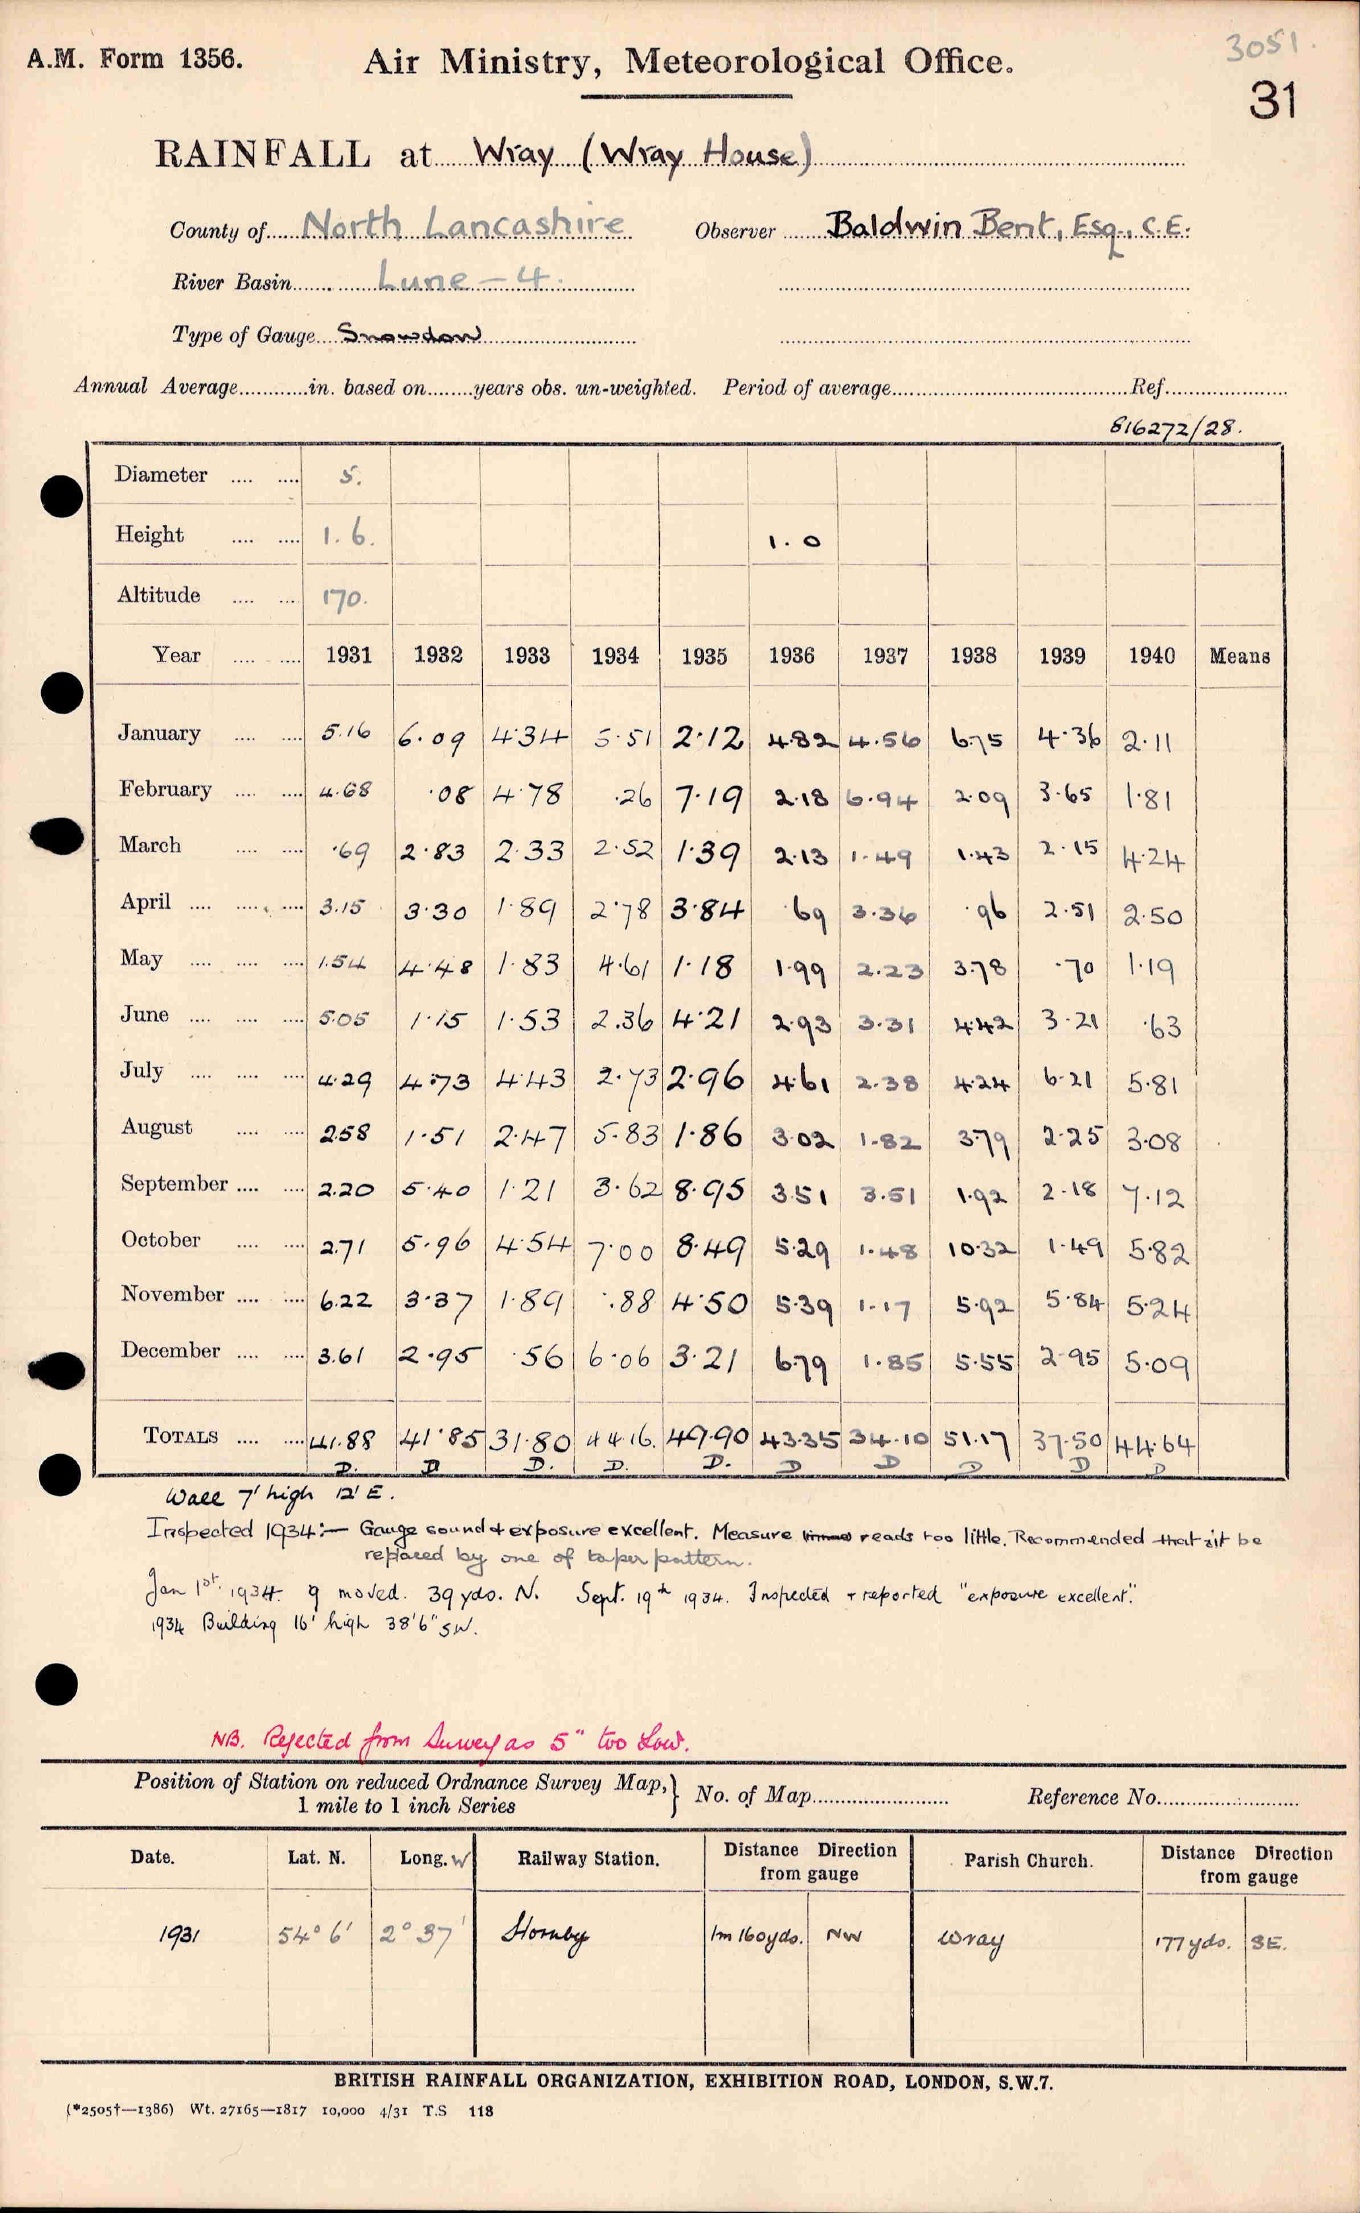 3051.
A.M. Form 1356. Air Ministry, Meteorological Office.
31
RAINFALL at Wray (Wray House)
County of North Lancashire Observer Baldwin Bent, Esq., C.E.
River Basin Lune - 4.
Type of Gauge Snowdon
Annual Average............in. based on........years obs. un-weighted. Period of average............Ref............
816272/28.
Diameter .... .... 5.
Height .... .... 1. 6. 1. 0
Altitude .... .... 170.
Year .... .... 1931 1932 1933 1934 1935 1936 1937 1938 1939 1940 Means
January .... .... 5.16 6.09 4.34 5.51 2.12 4.82 4.56 6.75 4.36 2.11
February .... .... 4.68 .08 4.78 .26 7.19 2.18 6.94 2.09 3.65 1.81
March .... .... .69 2.83 2.33 2.52 1.39 2.13 1.49 1.43 2.15 4.24
April .... .... .... 3.15 3.30 1.89 2.78 3.84 .69 3.36 .96 2.51 2.50
May .... .... .... 1.54 4.48 1.83 4.61 1.18 1.99 2.23 3.78 .70 1.19
June .... .... .... 5.05 1.15 1.53 2.36 4.21 2.93 3.31 4.42 3.21 .63
July .... .... .... 4.29 4.73 4.43 2.73 2.96 4.61 2.38 4.24 6.21 5.81
August .... .... 2.58 1.51 2.47 5.83 1.86 3.02 1.82 3.79 2.25 3.08
September .... .... 2.20 5.40 1.21 3.62 8.95 3.51 3.51 1.92 2.18 7.12
October .... .... 2.71 5.96 4.54 7.00 8.49 5.29 1.48 10.32 1.49 5.82
November .... .... 6.22 3.37 1.89 .88 4.50 5.39 1.17 5.92 5.84 5.24
December .... .... 3.61 2.95 .56 6.06 3.21 6.79 1.85 5.55 2.95 5.09
TOTALS .... .... 41.88 41.85 31.80 44.16. 49.90 43.35 34.10 51.17 37.50 44.64
D. D D. D. D. D D D D D
Wall 7' high 12' E.
Inspected 1934:- Gauge sound & exposure excellent. Measure reads too little. Recommended that it be
replaced by one of taper pattern.
Jan 1st. 1934. g moved. 39 yds. N. Sept. 19th 1934. Inspected + reported "exposure excellent".
1934 Building 16' high 38'6" SW.
NB. Rejected from Survey as 5" too Low.
Position of Station on reduced Ordnance Survey Map,} No. of Map............ Reference No............
1 mile to 1 inch Series
Date. Lat. N. Long. W Railway Station. Distance Direction from gauge Parish Church. Distance Direction from gauge
1931 54° 6' 2° 37' Hornby 1m 160yds. NW Wray 177 yds. SE.
BRITISH RAINFALL ORGANIZATION, EXHIBITION ROAD, LONDON, S.W.7.
(*2505†—1386) Wt. 27165—1817 10,000 4/31 T.S 118